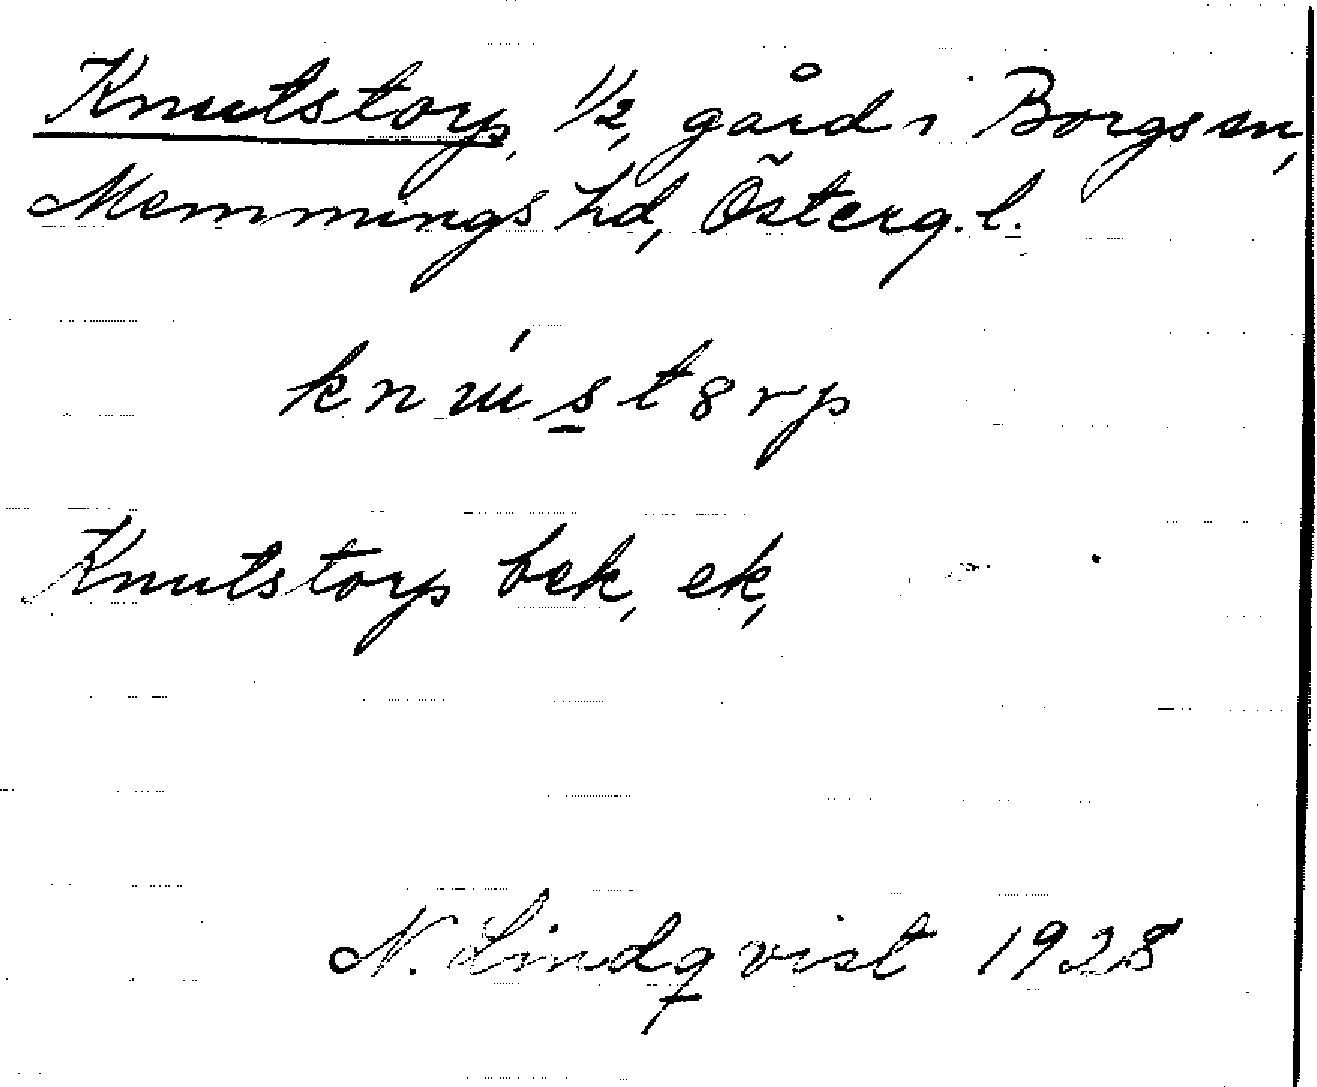 Knutstorp, 1/2, gård i Borgs sn,
Memmings hd, Österg.l.
knúst8rp
Knutstorp bek, ek,
N. Lindqvist 1928